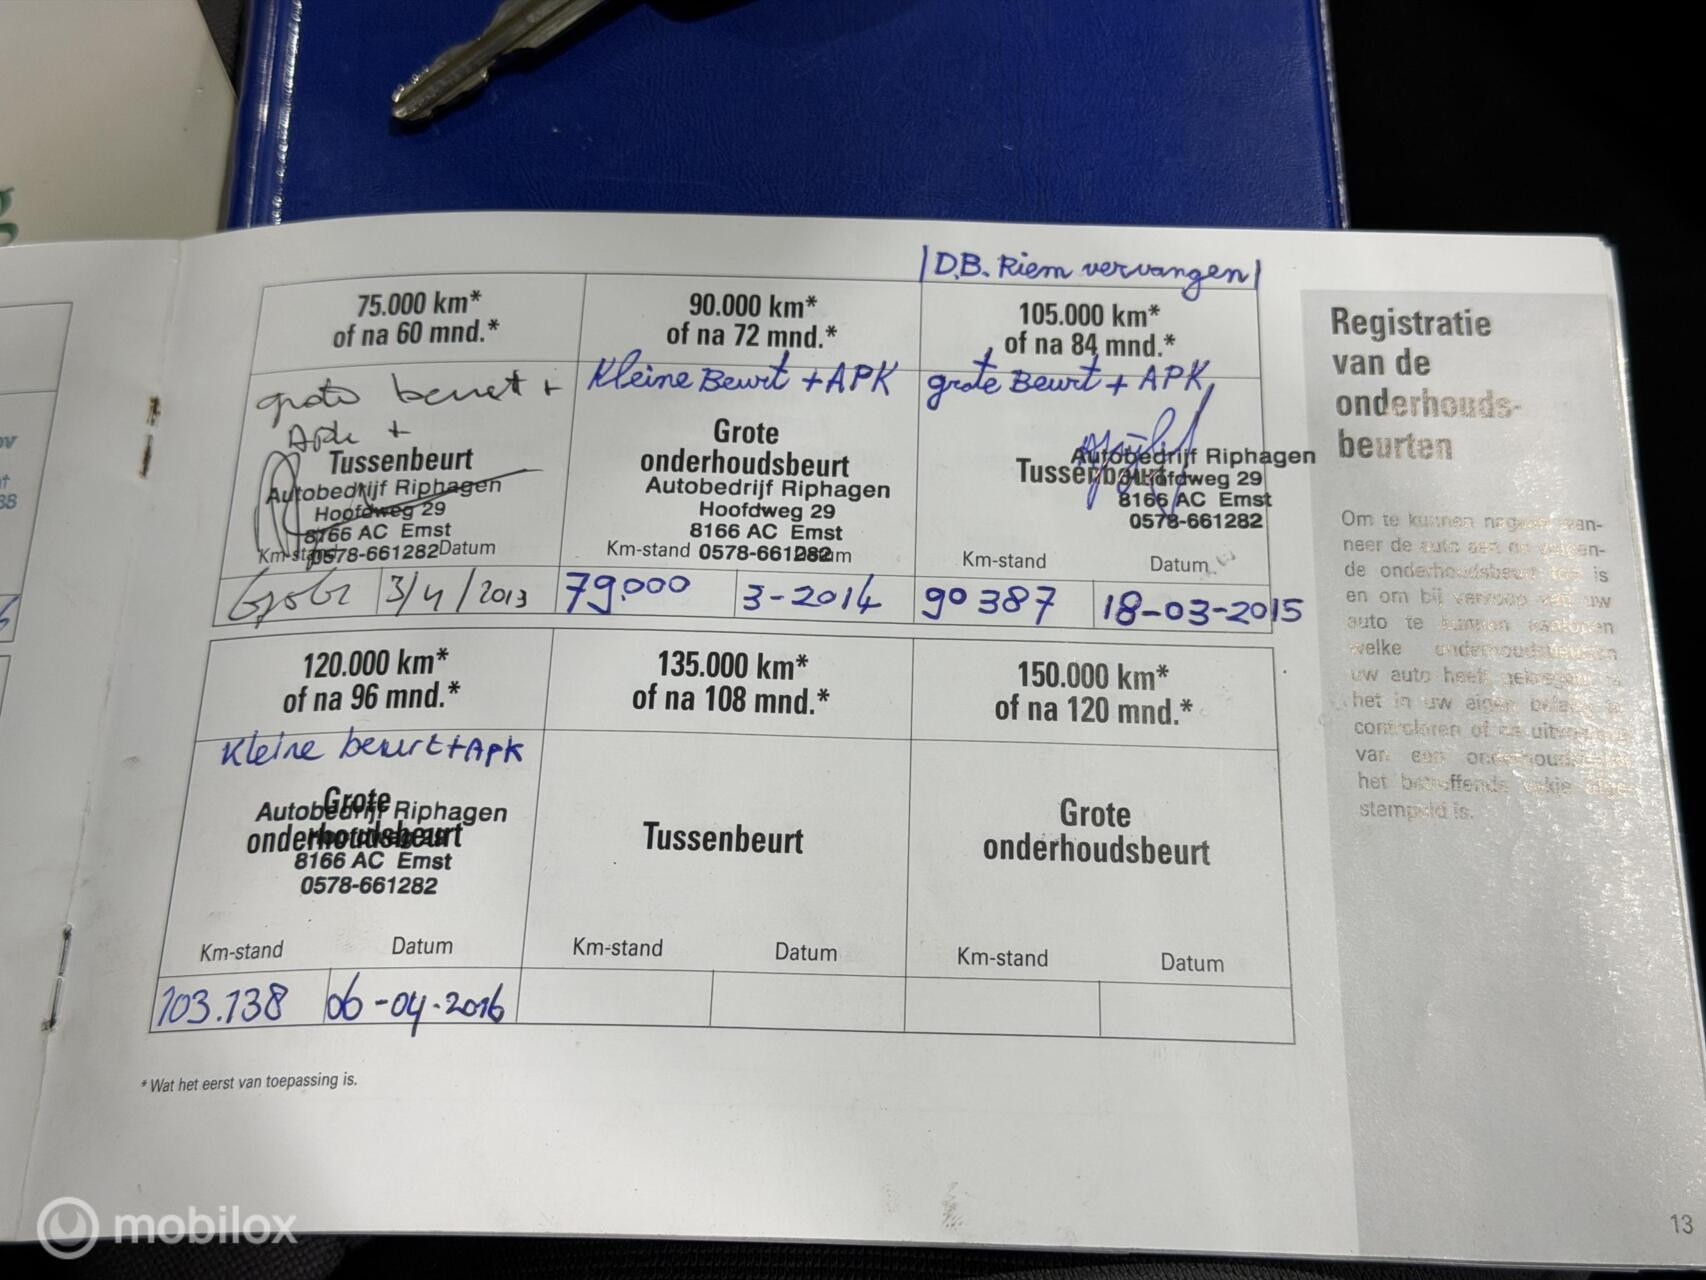 |D.B. Riem vervangen|
75.000 km*
of na 60 mnd.*
grote beurt +
Apk +
Tussenbeurt
Autobedrijf Riphagen
Hoofdweg 29
8166 AC Emst
0578-661282
Km-stand
Datum
3/4/2013
90.000 km*
of na 72 mnd.*
Kleine Beurt + APK
Grote
onderhoudsbeurt
Autobedrijf Riphagen
Hoofdweg 29
8166 AC Emst
0578-661282
Km-stand
Datum
79.000
3-2014
105.000 km*
of na 84 mnd.*
grote Beurt + APK
Tussenbeurt
Autobedrijf Riphagen
Hoofdweg 29
8166 AC Emst
0578-661282
Km-stand
Datum
90387
18-03-2015
120.000 km*
of na 96 mnd.*
Kleine beurt + Apk
Grote
onderhoudsbeurt
Autobedrijf Riphagen
Hoofdweg 29
8166 AC Emst
0578-661282
Km-stand
Datum
103.138
06-04-2016
135.000 km*
of na 108 mnd.*
Tussenbeurt
Km-stand
Datum
150.000 km*
of na 120 mnd.*
Grote
onderhoudsbeurt
Km-stand
Datum
* Wat het eerst van toepassing is.
Registratie
van de
onderhouds-
beurten
Om te kunnen nagaan wan-
neer de auto aan de volgen-
de onderhoudsbeurt toe is
en om bij verkoop van uw
auto te kunnen aantonen
welke onderhoudsbeurten
uw auto heeft gekregen is
het in uw eigen belang te
controleren of na uitvoering
van een onderhoudsbeurt
het betreffende vakje afge-
stempeld is.
13
mobilox